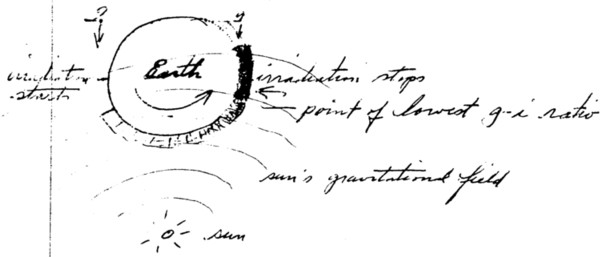 ?
Earth
irradiation stops
starts
point of lowest g-i ratio
sun's gravitational field
sun